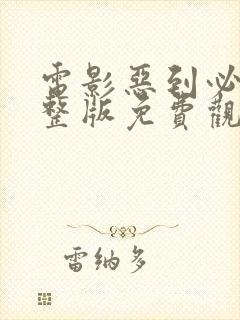 電影惡到必
整版免費觀
雷納多